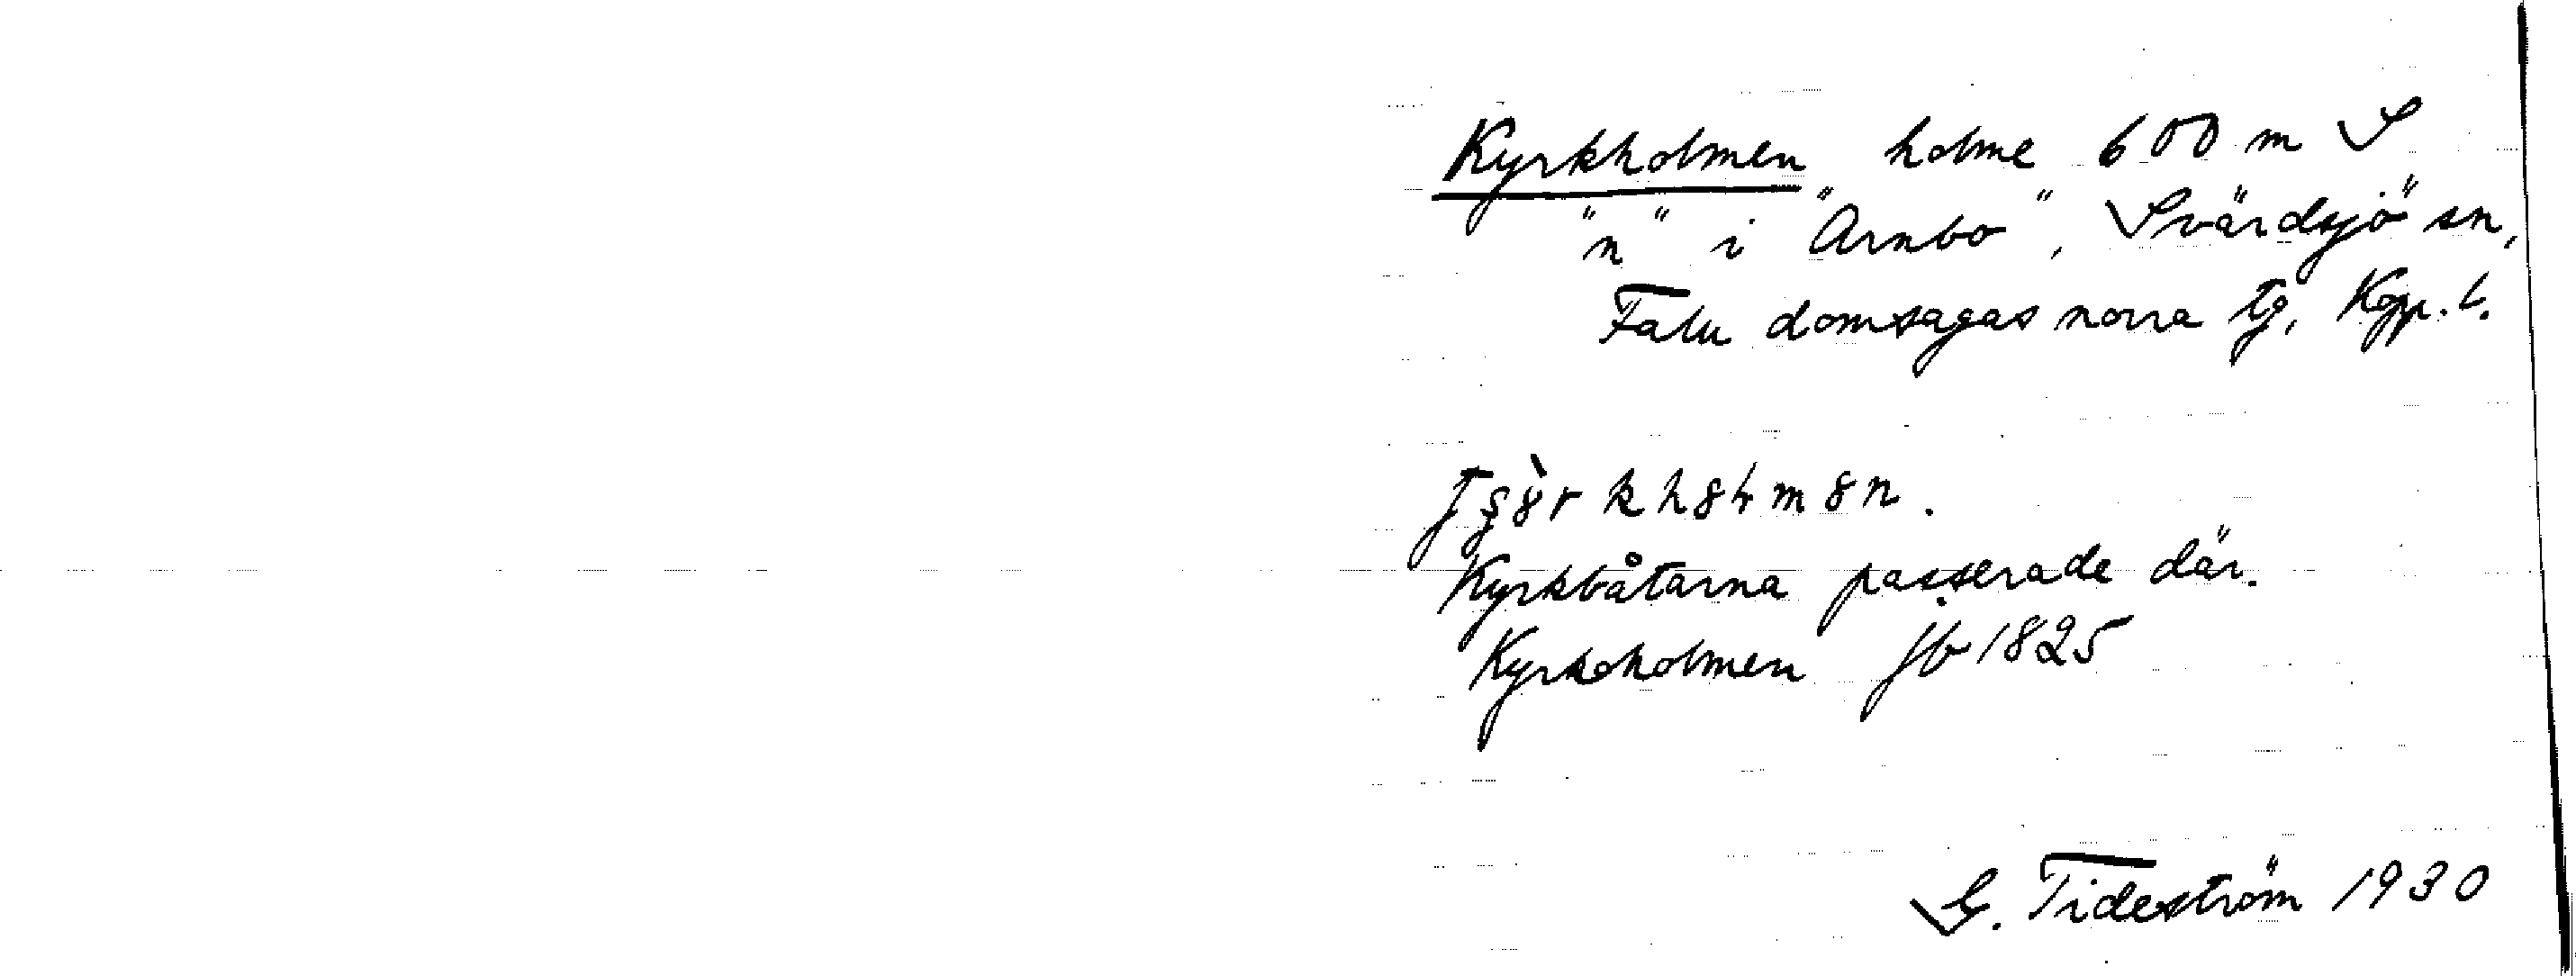 Kyrkholmen holme 600 m S
"n" i "Arnbo", Svärdsjö sn,
Falu domsagas norra tg, Kopp. l.
Kyrkbåtarna passerade där.
Kyrkoholmen Jb 1825
G. Tideström 1930